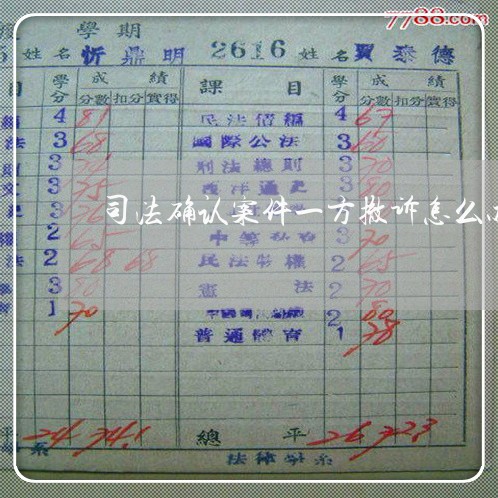 7788.com
學期
姓名 忻鼎明 2616 姓名 賈泰德
目 學分 成績 課目 學分 成績
分數 扣分 實得 分數 扣分 實得
4 81 民法債編 4 67
法 3 68 國際公法 3 60
3 刑法總則 3 70
3 75 西洋通史 3 80
3
司法确认案件一方撤诉怎么
2 65 3 70
法 2 68 68 民法物權 2 65
3 80 憲法 2 70
1 70 2 80
普通體育 1 78
平 24 74.1 總平 26 72.3
系 法律學系